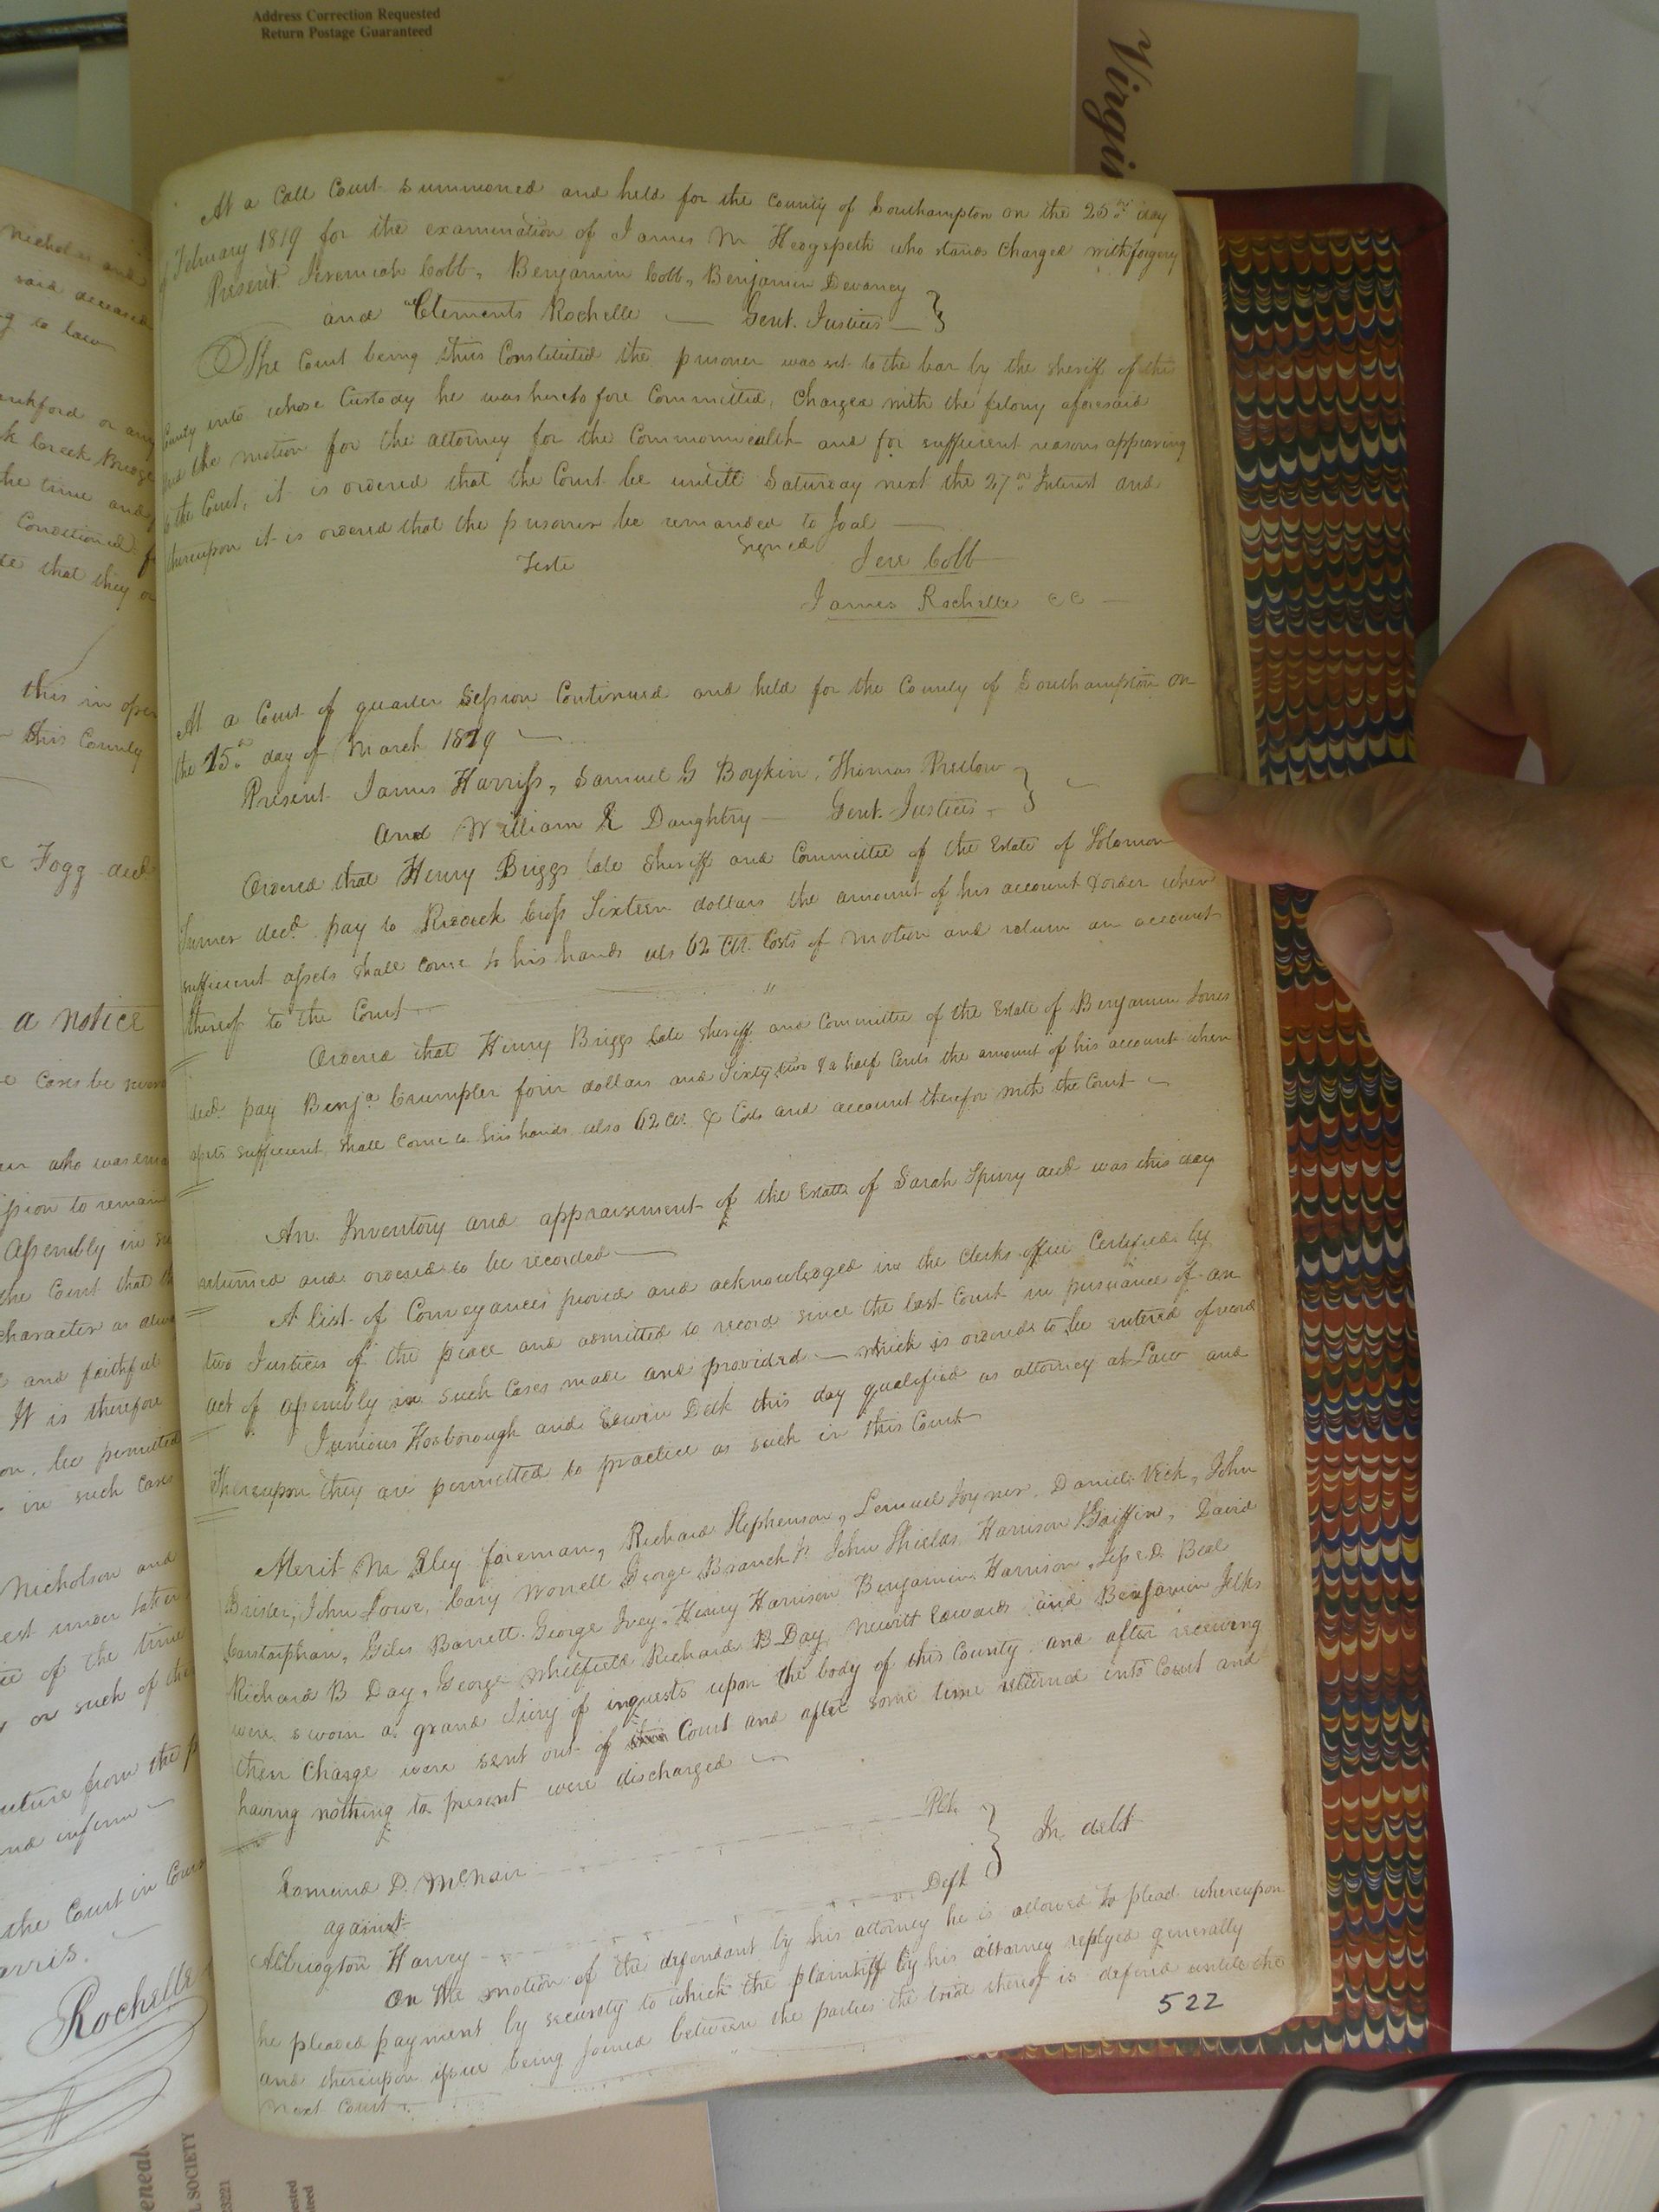 Address Correction Requested
Return Postage Guaranteed
Virgin
At a Call Court summoned and held for the County of Southampton on the 25th day
of February 1819 for the examination of James M Hedgepeth who stands Charged with forgery
Present Jeremiah Cobb, Benjamin Cobb, Benjamin Devaney
and Clements Rochelle — Gent. Justices —
The Court being thus Constituted the prisoner was set to the bar by the sheriff of this
County into whose Custody he was heretofore Committed, Charged with the felony aforesaid
and the motion for the attorney for the Commonwealth and for sufficient reasons appearing
to the Court, it is ordered that the Court be untill Saturday next the 27th Interest and
thereupon it is ordered that the prisoner be remanded to Joal —
Signed
Teste Jere Cobb
James Rochelle CC —
At a Court of quarter Session Continued and held for the County of Southampton on
the 15th day of March 1819
Present James Harriss, Samuel G Boykin, Thomas Pretlow
and William R Daughtry — Gent. Justices
Ordered that Henry Briggs late Sheriff and Committee of the Estate of Solomon
Turner decd. pay to Redick Cross Sixteen dollars the amount of his account & order when
sufficient assets shall come to his hands als 62 Cts. Costs of motion and return an account
thereof to the Court
Ordered that Henry Briggs late Sheriff and Committee of the Estate of Benjamin Jones
decd. pay Benja. Crumpler four dollars and Sixty two & a half Cents the amount of his account when
assets sufficient, shall come to his hands also 62 Cts. & Costs and account therefor with the Court
An Inventory and appraisement of the Estate of Sarah Spivy decd. was this day
returned and ordered to be recorded
A list of Conveyances proved and acknowledged in the Clerks office Certified by
two Justices of the peace and admitted to record since the last Court in pursuance of an
act of assembly in such Cases made and provided — which is ordered to be entered of record
Junious Hoxborough and Edwin Delk this day qualified as attorney at Law and
Thereupon they are permitted to practice as such in this Court
Merit M Eley foreman, Richard Stephenson, Lemuel Joyner, Daniel Vick, John
Brister, John Lowe, Cary Worrell George Branch Jr. John Shields Harrison Griffin, David
Carstarphan, Giles Barrett. George Ivey, Henry Harrison Benjamin Harrison, Jesse D. Beal
Richard B Day, George Whitfield Richard B Day Newitt Edwards and Benjamin Jelks
were sworn a grand Jury of inquests upon the body of this County and after receiving
then Charge were sent out of Court and after some time returned into Court and
having nothing to present were discharged
Edmund D. McNair Plt.
against In debt
Albrington Harvey Deft
On the motion of the defendant by his attorney he is allowed to plead whereupon
he pleaded payment by security to which the plaintiff by his attorney replyed generally
and thereupon issue being joined between the parties the trial thereof is defered untill the
next Court
522
Nicholas and
said deceased
to law
ankford or any
Creek Bridge
the time and
Conditioned f
te that they
this in open
this County
Fogg decd
a notice
Cases be
who was
ssion to remain
Assembly in
the Court that
Character as
and faithful
It is therefore
on, be permitted
in such Cases
Nicholson and
of the time
or such of the
from the
and inform
the Court in
arris.
Rochelle
eneal
L SOCIETY
23221